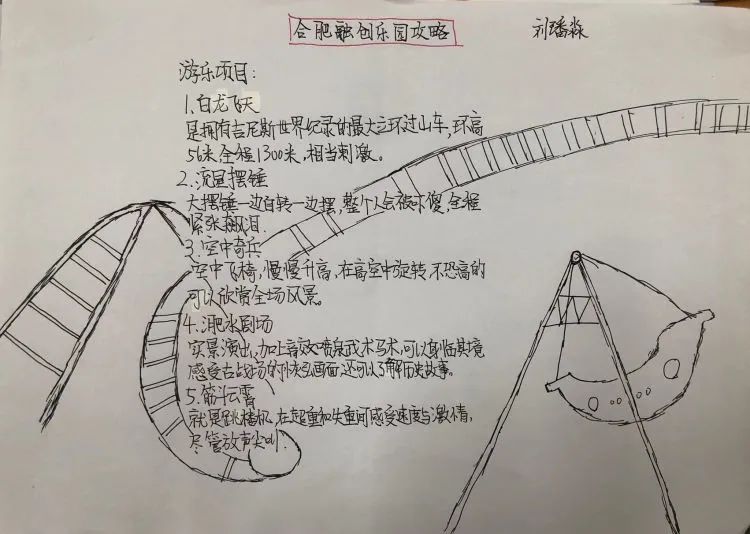 合肥融创乐园攻略
刘潘淼
游乐项目:
1.白龙飞天
是拥有吉尼斯世界纪录的最大立环过山车,环高
56米,全程1300米,相当刺激。
2.流星摆锤
大摆锤一边自转一边摆,整个人会被吓傻,全程
紧张飙泪.
3.空中奇兵
空中飞椅,慢慢升高,在高空中旋转,不恐高的
可以欣赏全场风景。
4.淝水剧场
实景演出,加上音效喷泉武术马术,可以身临其境
感受古战场的恢弘画面,还可以了解历史故事。
5.筋斗云霄
就是跳楼机,在超重和失重间感受速度与激情,
尽管放声尖叫.